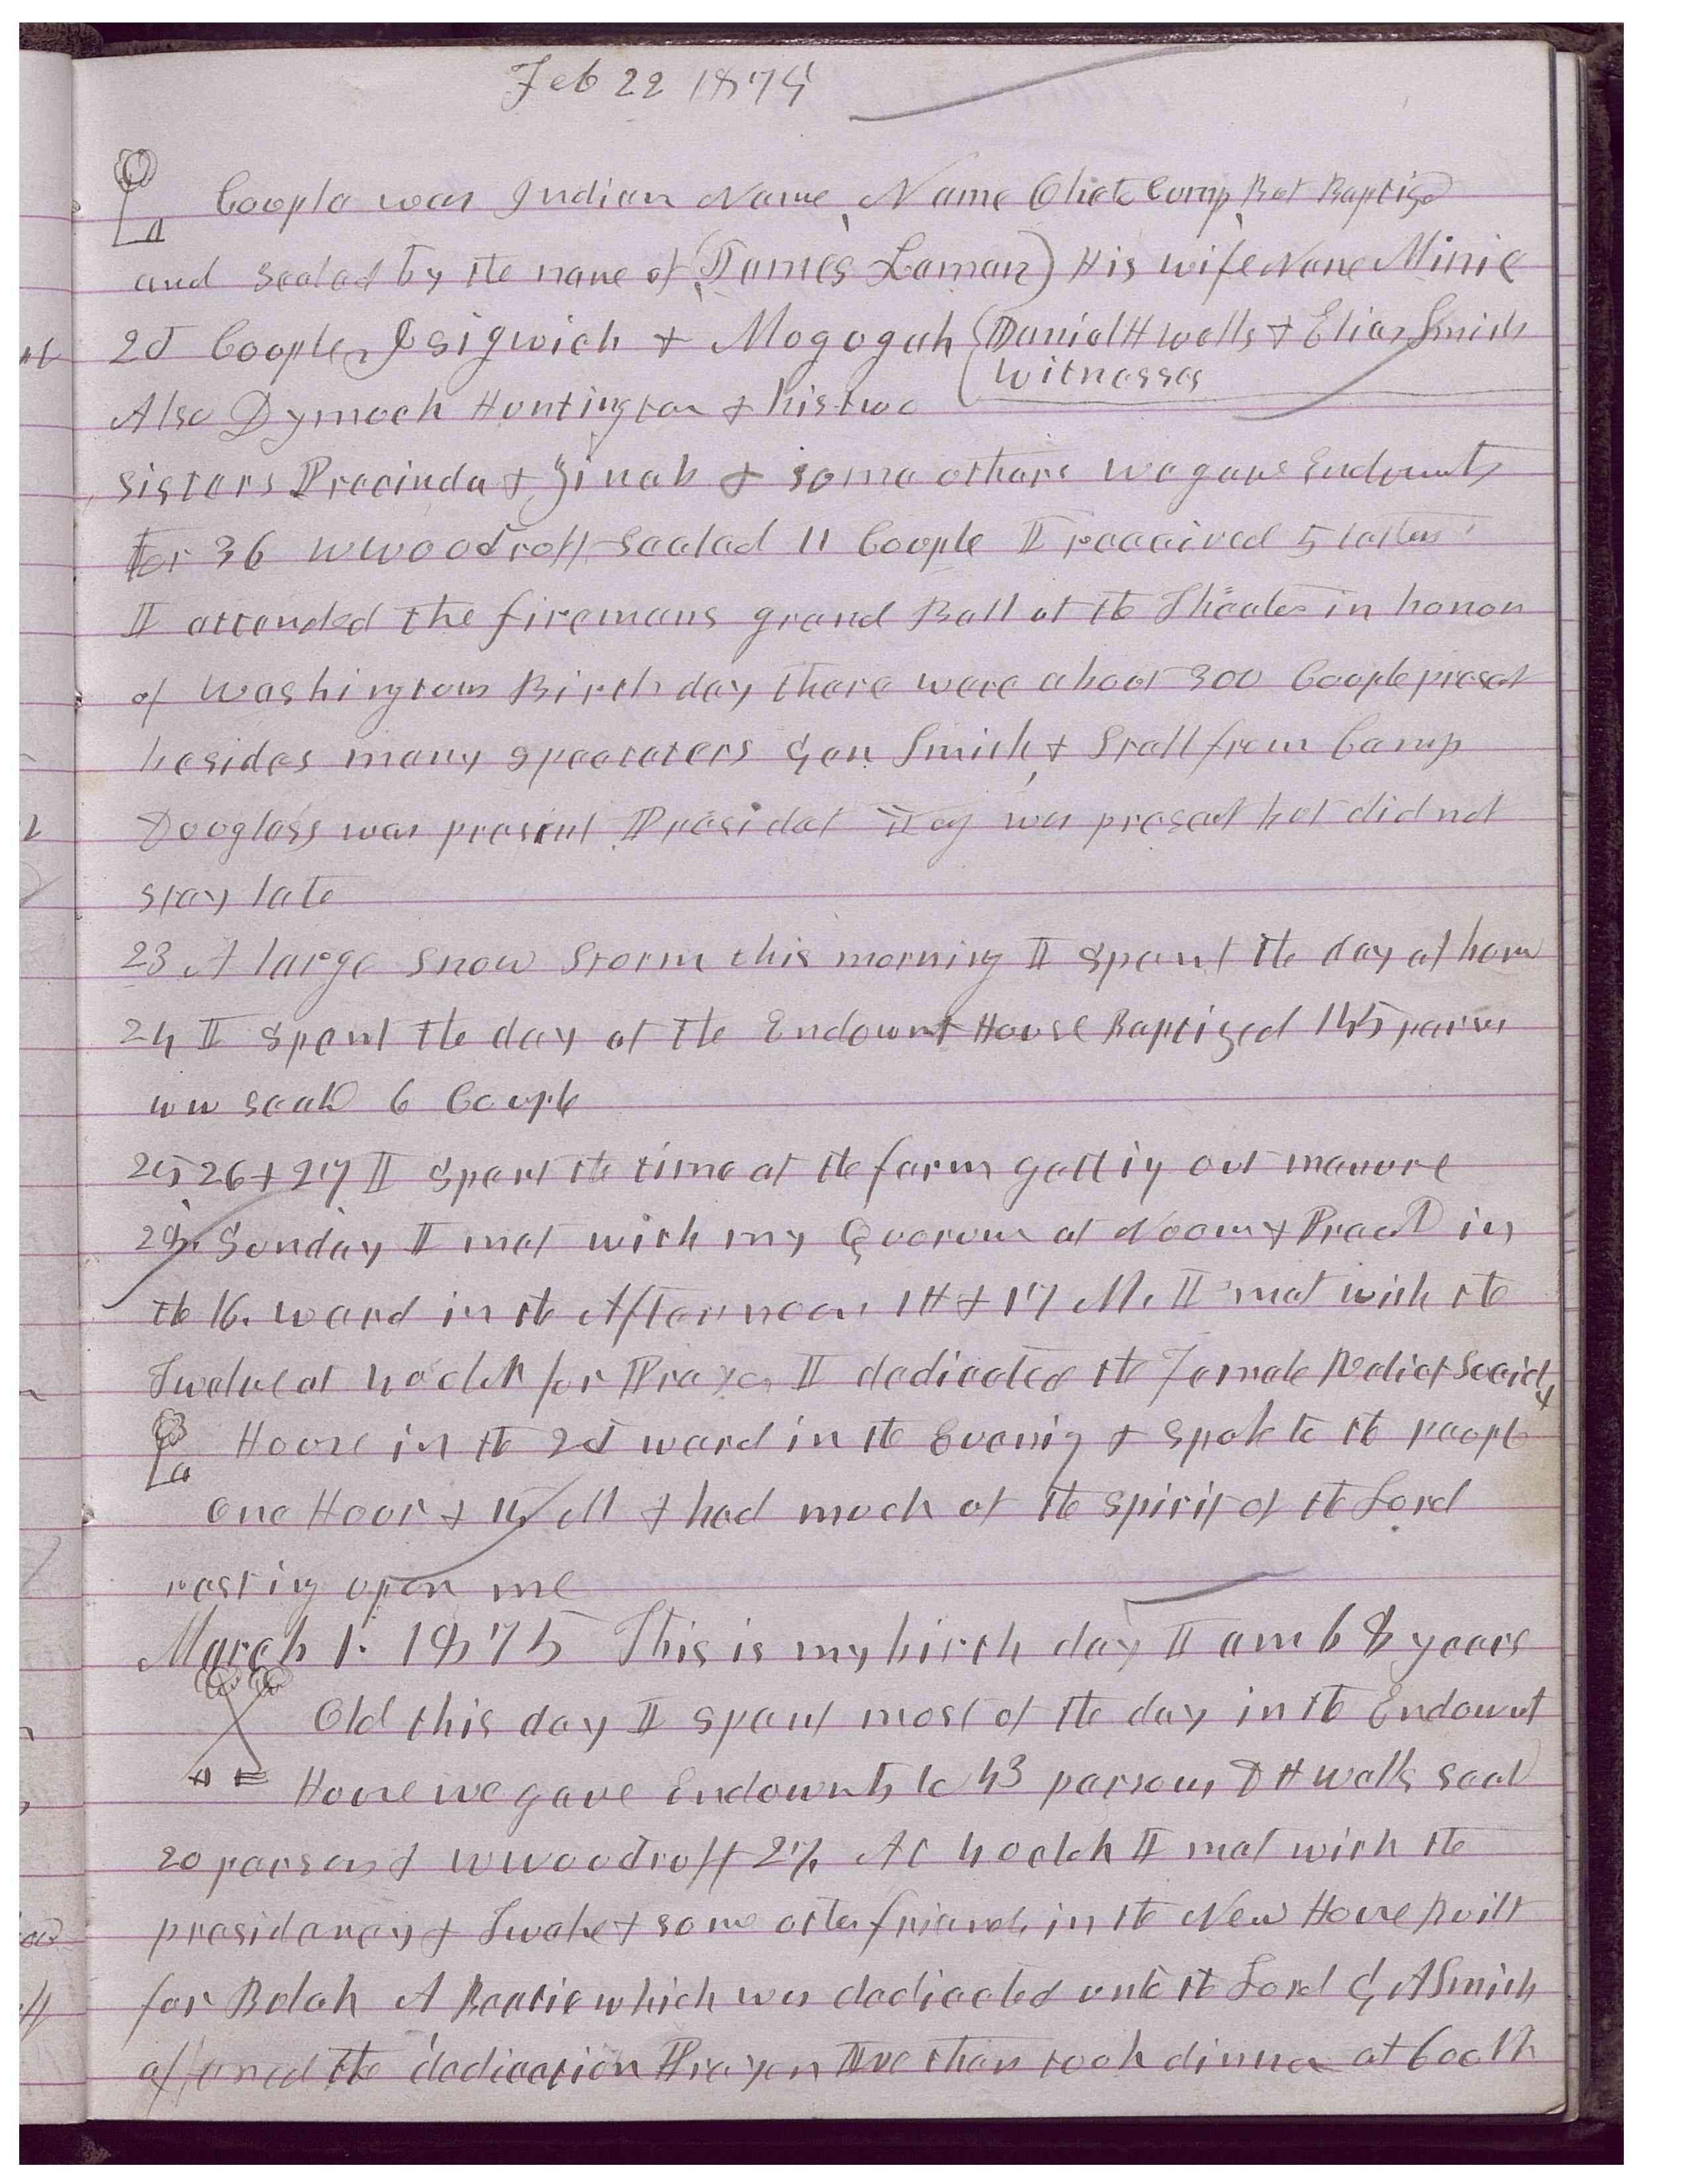 Feb 22 1875
Coople was Indian Name, Name Chief Comp But Baptised
and sealed by the name of (James Laman) His wife Name Minie
2d Coople Isigwich & Mogogah (Daniel H wells & Elias Smith
Witnesses
Also Dymock Huntington & his two
Sisters Precinda & Zinah & some others we gave Endowmts
for 36 W Woodruff Sealed 11 Couple I received 5 letters
I attended the firemans grand Ball at the Theater in honor
of Washingtons Birth day there were about 300 Couple present
besides many spectators Gen Smith & Staff from Camp
Douglass was present President was present but did not
stay late
23 A large Snow Storm this morning I spent the day at home
24 I spent the day at the Endowmt House Baptized 145 persons
WW seald 6 Couple
25 26 & 27 I spent the time at the farm getting out manure
28. Sunday I met with my Quorum at Noon & Preachd in
the 16. ward in the Afternoon 1H & 17 M. I met with the
Twelve at 4 oclk for Prayer I dedicated the Female Relief Society
House in the 2d ward in the Evenig & spoke to the people
one Hour & 15 M & had much of the spirit of the Lord
resting upon me
March 1. 1875 This is my birth day I am 68 years
Old this day I spent most of the day in the Endowmt
House we gave Endowmts to 43 persons D H wells seald
20 persons & W Woodruff 27. At 4 oclok I met with the
presidency & Twelve & some other friends in the New House built
for Belah A Beatie which was dedicated unto the Lord G A Smith
offered the dedication Prayer We then took dinner at 6 oclk